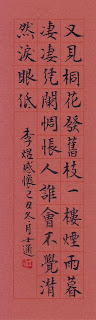 又見桐花發舊枝一樓煙雨暮
凄凄凭闌惆悵人誰會不覺潸
然淚眼低
李煜感懷己丑冬月士通